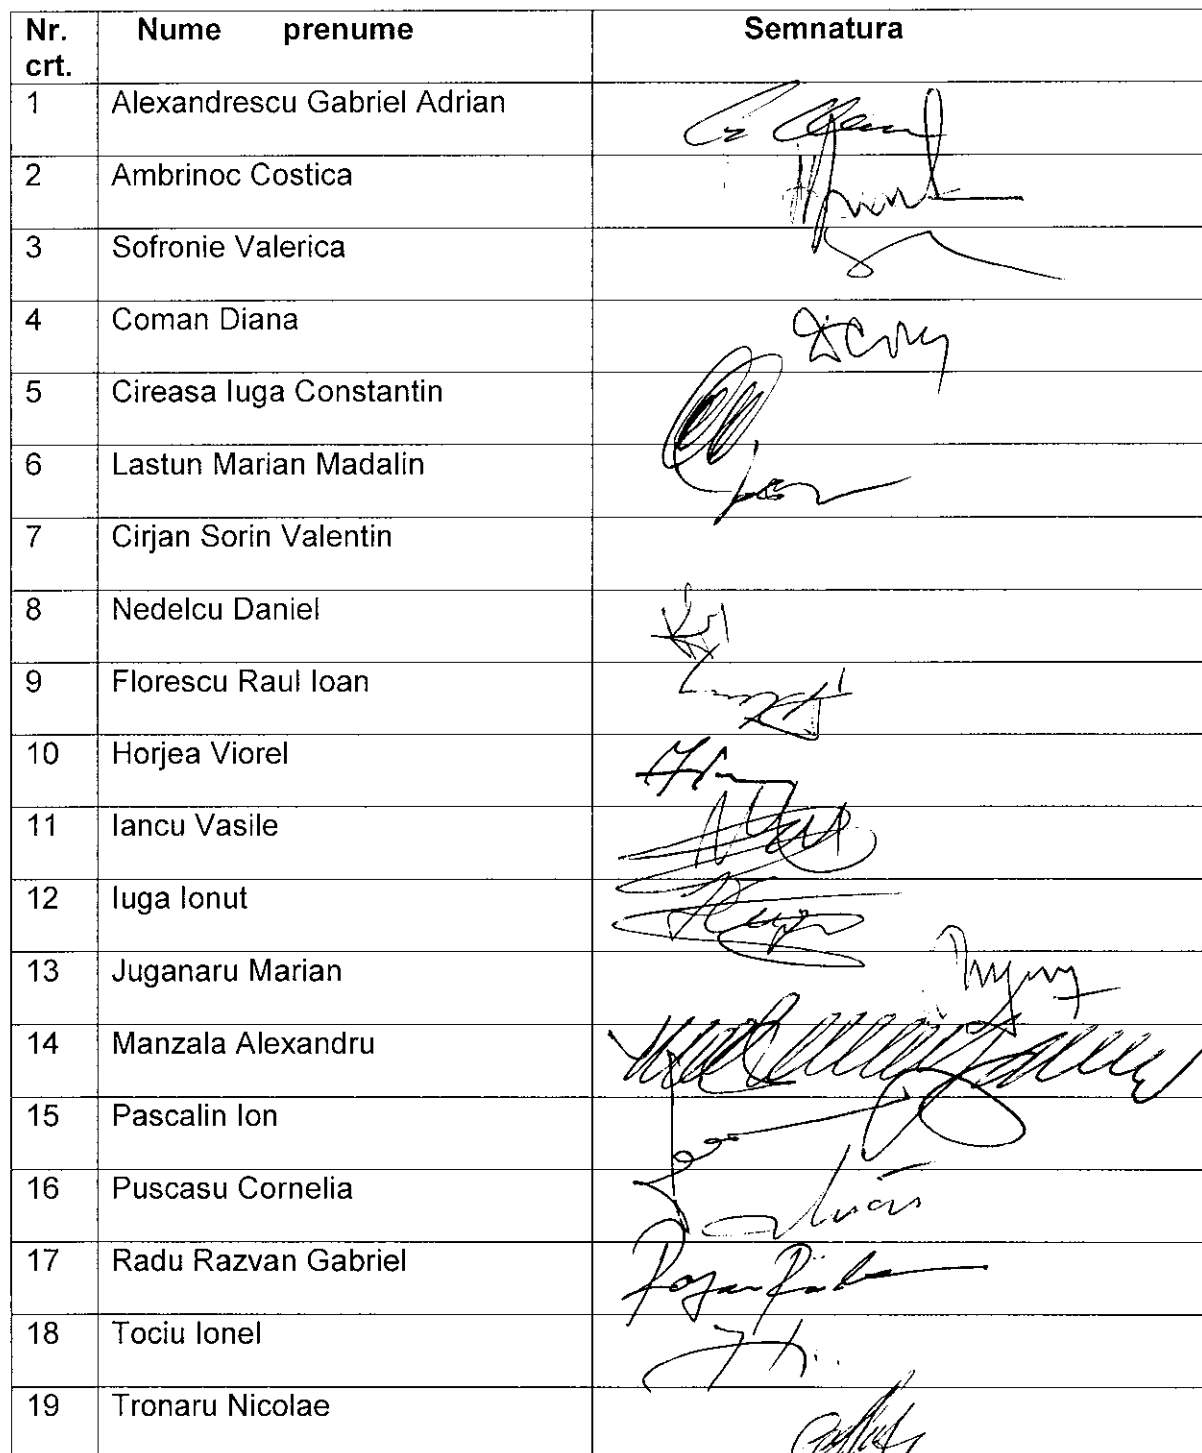 Nr. crt. Nume prenume Semnatura
1 Alexandrescu Gabriel Adrian
2 Ambrinoc Costica
3 Sofronie Valerica
4 Coman Diana
5 Cireasa Iuga Constantin
6 Lastun Marian Madalin
7 Cirjan Sorin Valentin
8 Nedelcu Daniel
9 Florescu Raul Ioan
10 Horjea Viorel
11 Iancu Vasile
12 Iuga Ionut
13 Juganaru Marian
14 Manzala Alexandru
15 Pascalin Ion
16 Puscasu Cornelia
17 Radu Razvan Gabriel
18 Tociu Ionel
19 Tronaru Nicolae